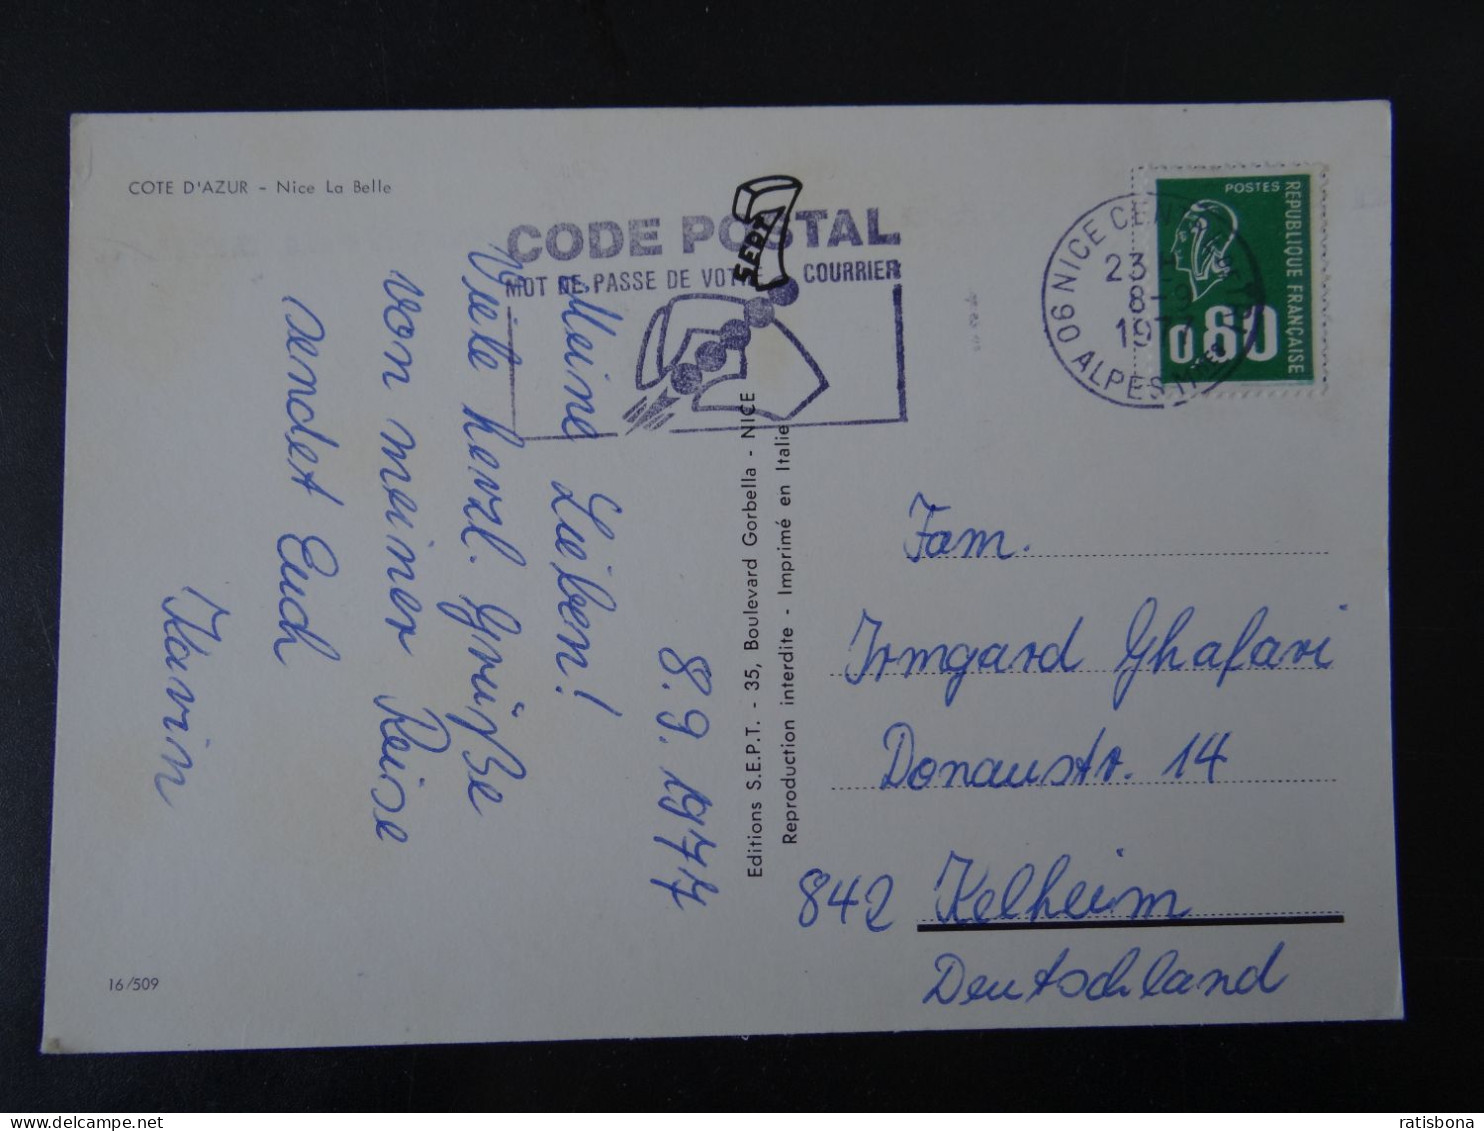 COTE D'AZUR - Nice La Belle
CODE POSTAL
MOT DE PASSE DE VOTRE COURRIER
SEPT
06 NICE CENTRE
23
8-9
1977
ALPES MMES
POSTES
REPUBLIQUE FRANÇAISE
0,80
8.9.1977
Meine Lieben!
Viele herzl. Grüße
von meiner Reise
sendet Euch
Karin
Editions S.E.P.T. - 35, Boulevard Gorbella - NICE
Reproduction interdite - Imprimé en Italie
Fam.
Irmgard Ghafari
Donaustr. 14
842 Kelheim
Deutschland
16/509
ratisbona